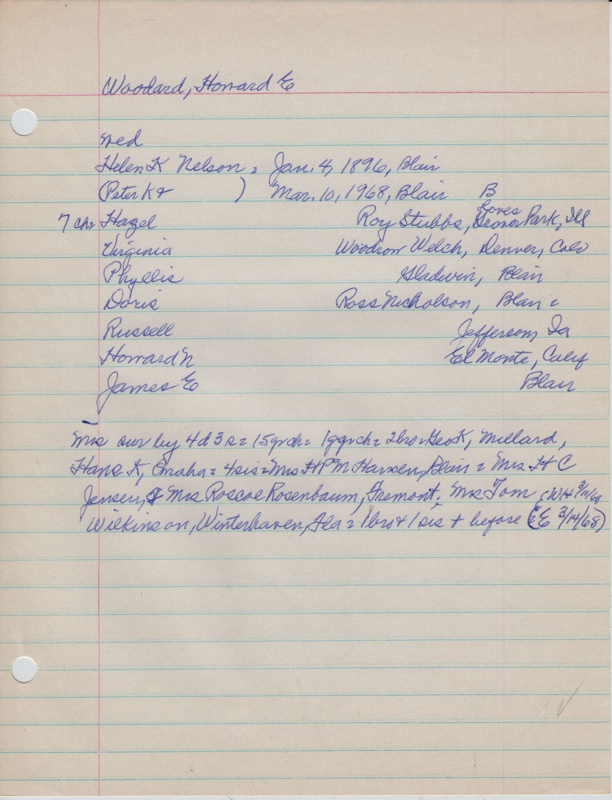 Woodard, Howard E
wed
Helen K Nelson = Jan. 4, 1896, Blair
(Peter K + ) Mar. 10, 1968, Blair B
7 ch= Hazel Roy Stubbs, Loves Park, Ill
Virginia Woodrow Welch, Denver, Colo
Phyllis Gladwin, Blair
Doris Ross Nicholson, Blair =
Russell Jefferson, Ia
Howard N El Monte, Calif
James E Blair
Mrs sur by 4 d 3 s = 15 grch = 1 ggrch = 2 bro = Geo K, Millard,
Hans K, Omaha = 4 sis = Mrs H P M Hansen, Blair = Mrs H C
Jensen, & Mrs Roscoe Rosenbaum, Fremont; Mrs Tom
Wilkinson, Winterhaven, Fla = 1 bro + 1 sis + before (E 3/14/68)